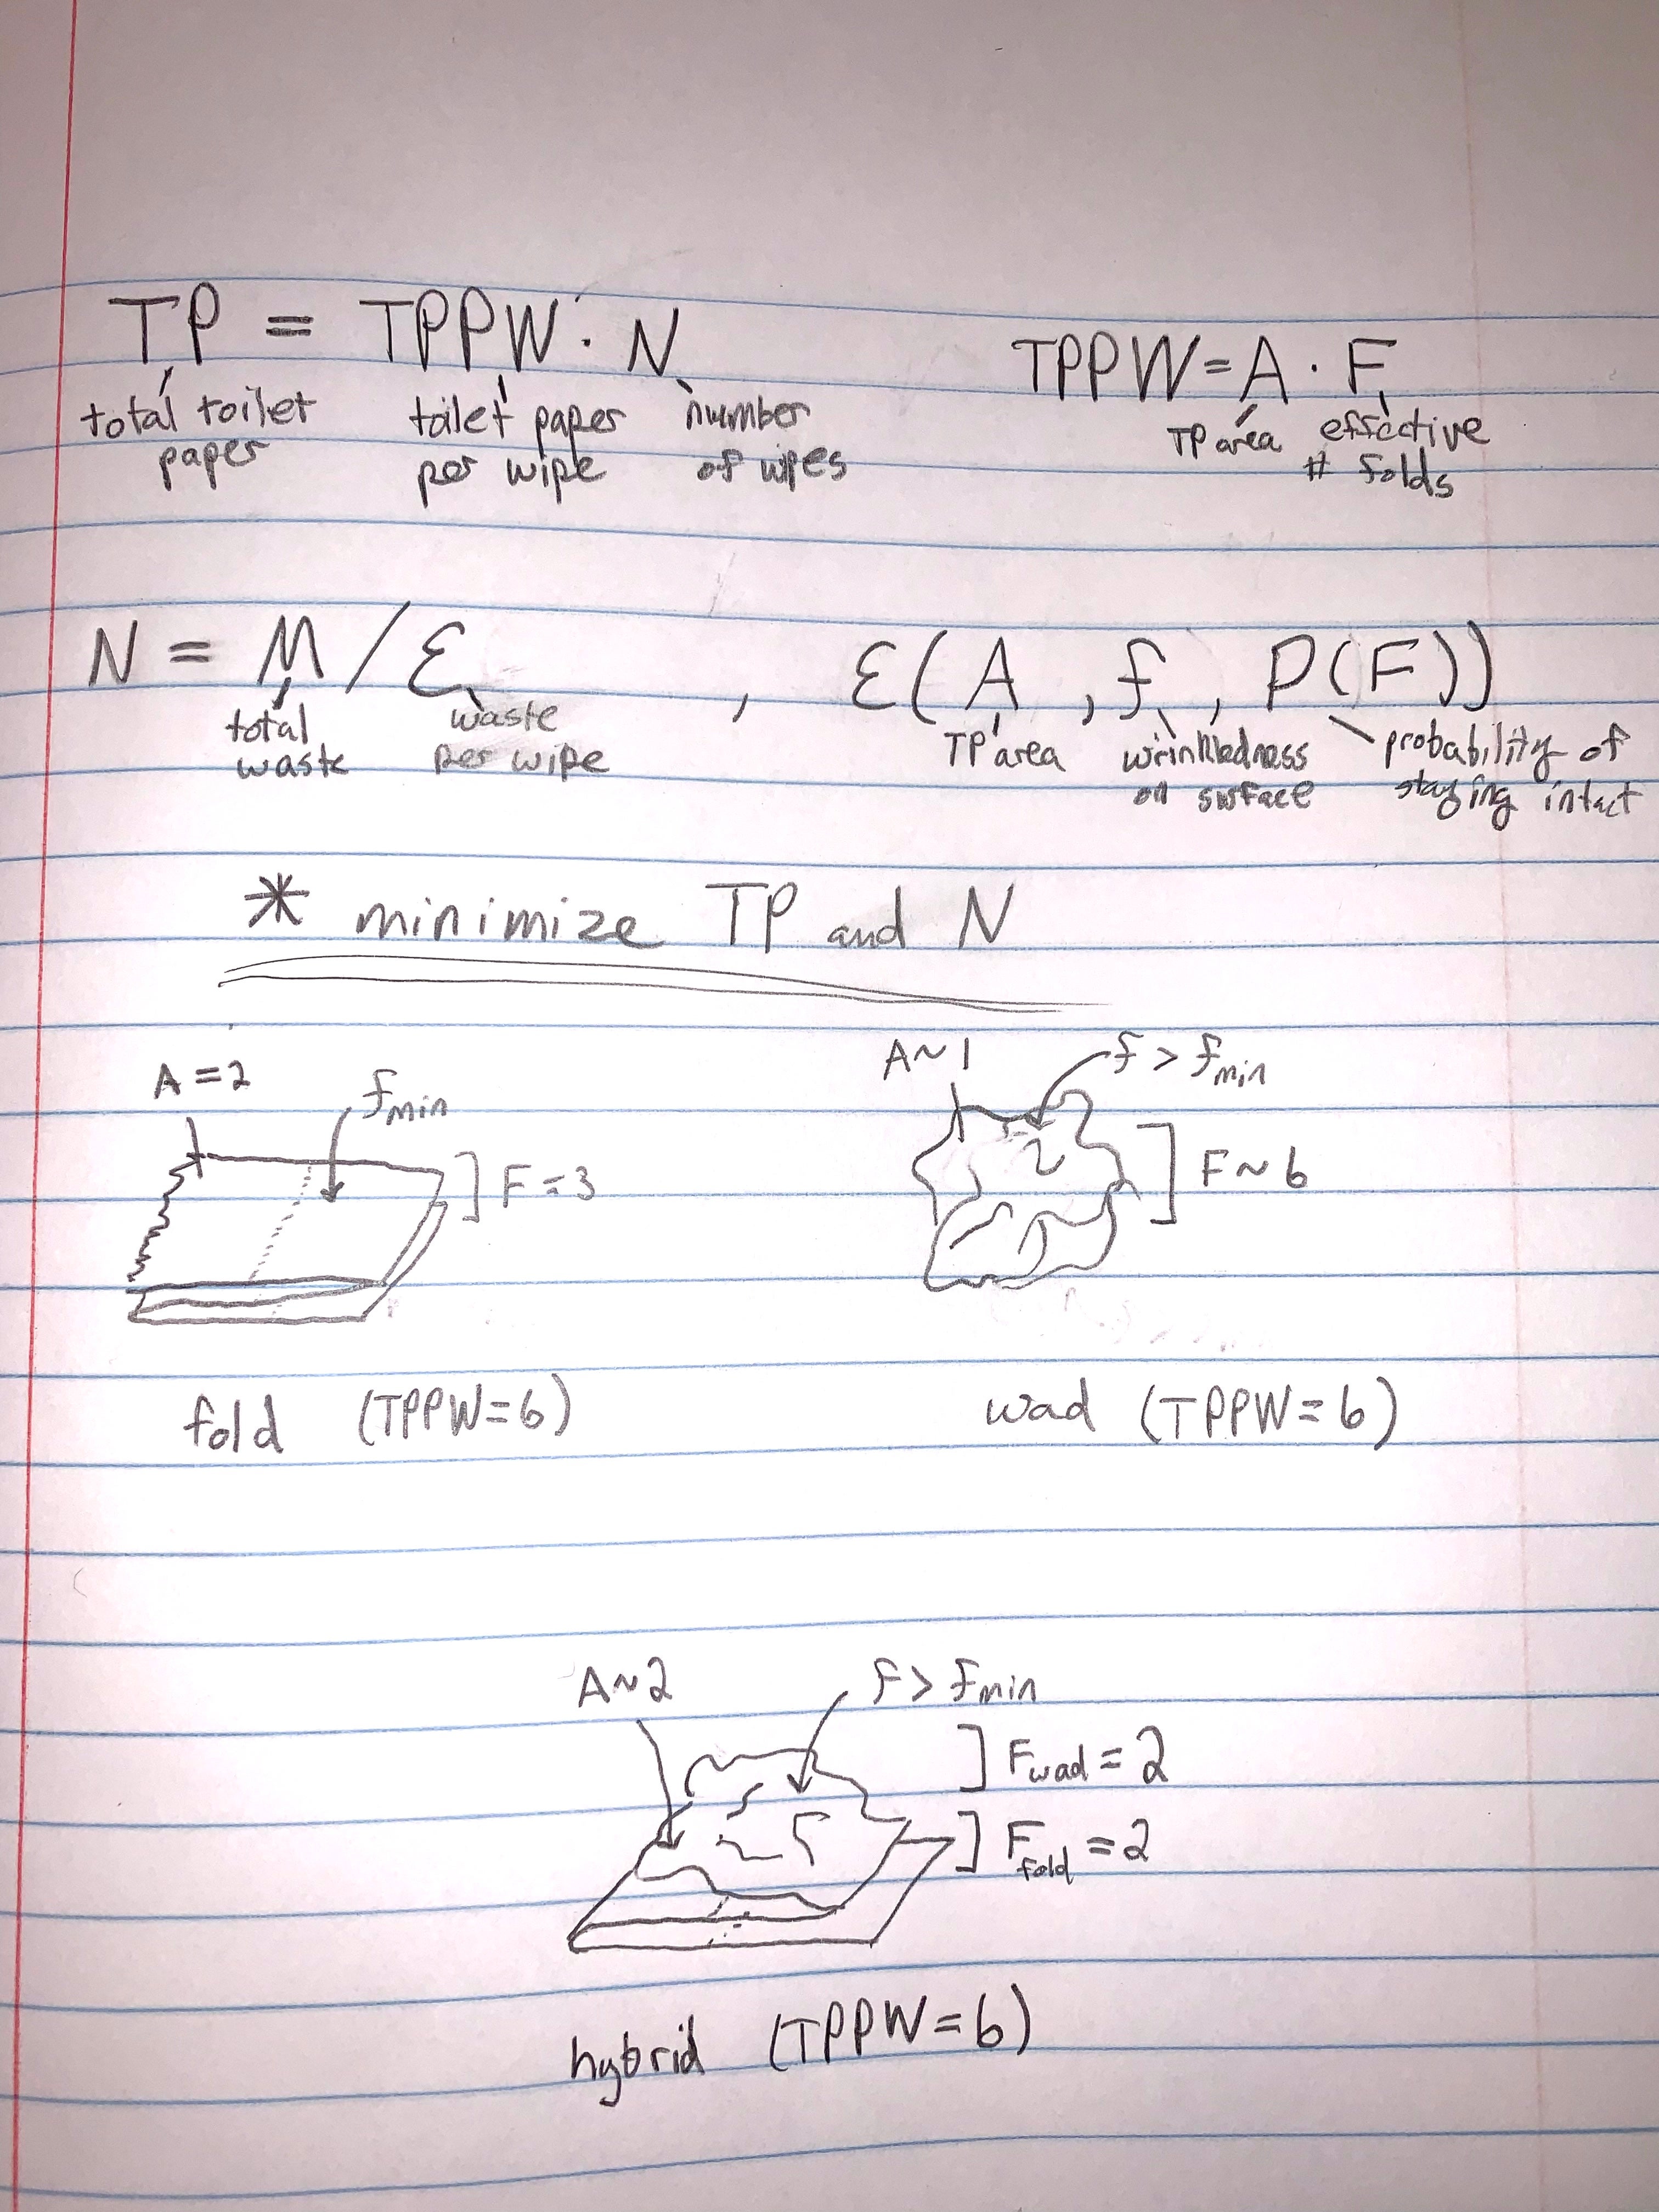 TP = TPPW · N
total toilet paper
toilet paper per wipe
number of wipes
TPPW = A · F
TP area
effective # folds
N = M / ε , ε(A, f, P(F))
total waste
waste per wipe
TP area
wrinkledness on surface
probability of staying intact
* minimize TP and N
A = 2
fmin
F = 3
fold (TPPW=6)
A ~ 1
f > fmin
F ~ 6
wad (TPPW=6)
A ~ 2
f > fmin
Fwad = 2
Ffold = 2
hybrid (TPPW=6)